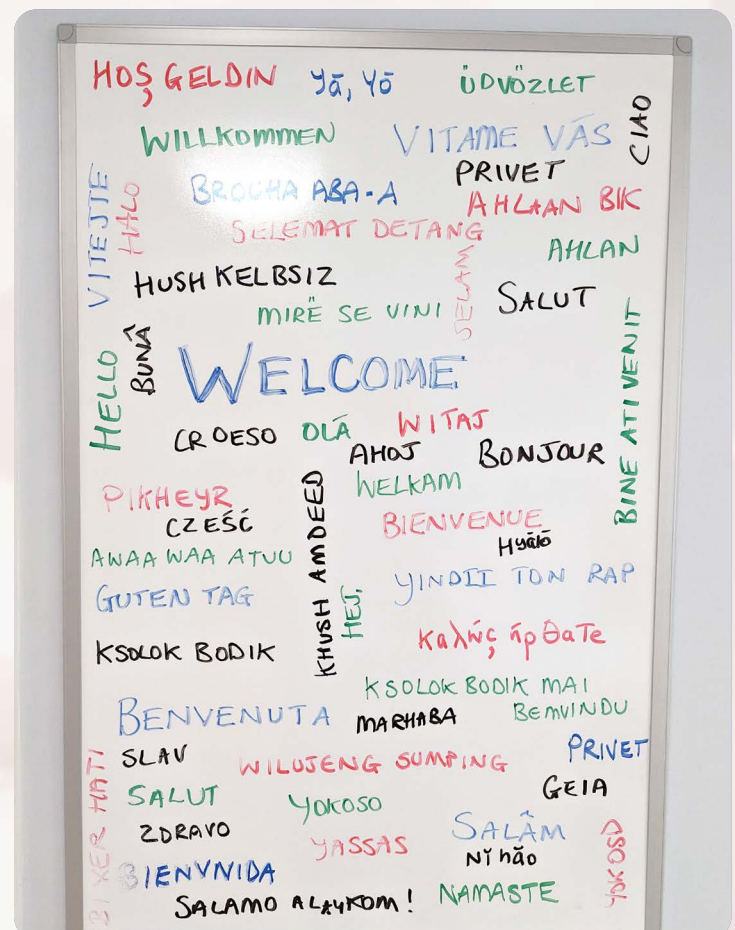 HOŞ GELDIN
Yā, Yō
ÜDVÖZLET
WILLKOMMEN
VITAME VÁS
CIAO
PRIVET
VITEJTE
HALO
BROCHA ABA-A
AHLAAN BIK
SELEMAT DETANG
AHLAN
SELAM
HUSH KELBSIZ
SALUT
MIRË SE VINI
HELLO
BUNÂ
WELCOME
BINE ATI VENIT
CROESO
OLÁ
WITAJ
AHOJ
BONJOUR
WELKAM
PIKHEYR
KHUSH AMDEED
CZEŚĆ
BIENVENUE
AWAA WAA ATUU
YINDII TON RAP
GUTEN TAG
HEJ,
καλώς ήρθατε
KSOLOK BODIK
KSOLOK BODIK MAI
BENVENUTA
MARHABA
BEMVINDU
SLAV
WILUJENG SUMPING
PRIVET
BI XER HATI
SALUT
YOKOSO
GEIA
ZDRAVO
YASSAS
SALÂM
Nǐ hǎo
YOKOSO
BIENVNIDA
SALAMO ALAYKOM!
NAMASTE